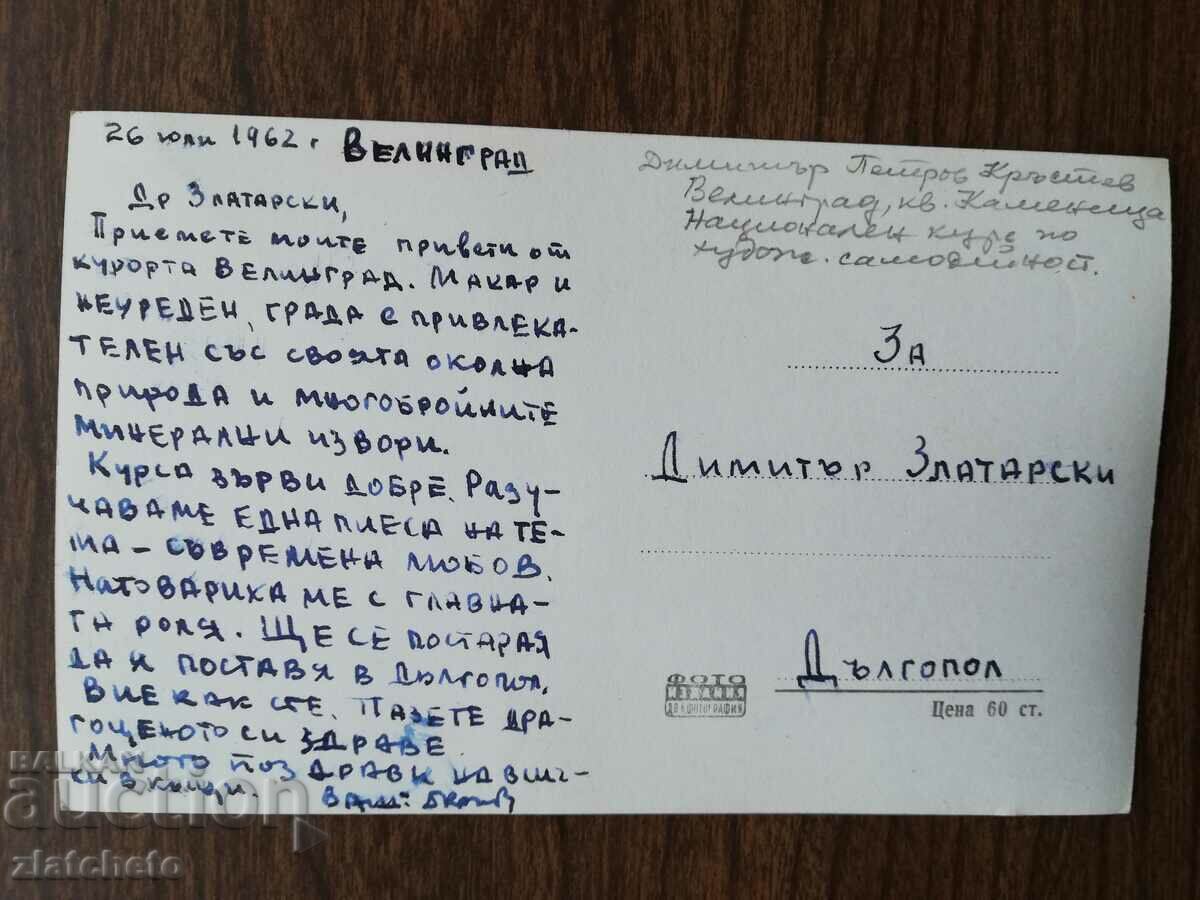 26 юли 1962 г ВЕЛИНГРАД
ДР ЗЛАТАРСКИ,
ПРИЕМЕТЕ МОИТЕ ПРИВЕТИ ОТ
КУРОРТА ВЕЛИНГРАД. МАКАР И
НЕУРЕДЕН, ГРАДА Е ПРИВЛЕКА-
ТЕЛЕН СЪС СВОЯТА ОКОЛНА
ПРИРОДА И МНОГОБРОЙНИТЕ
МИНЕРАЛНИ ИЗВОРИ.
КУРСА ВЪРВИ ДОБРЕ. РАЗУ-
ЧАВАМЕ ЕДНА ПИЕСА НА ТЕ-
МА – СЪВРЕМЕНА ЛЮБОВ.
НАТОВАРИХА МЕ С ГЛАВНА-
ТА РОЛЯ. ЩЕ СЕ ПОСТАРАЯ
ДА Я ПОСТАВЯ В ДЪЛГОПОЛ.
ВИЕ КАК СТЕ. ПАЗЕТЕ ДРА-
ГОЦЕНОТО СИ ЗДРАВЕ
МНОГО ПОЗДРАВИ НА ВСИЧ-
КИ В
ВАШ:
Димитър Петров Кръстев
Велинград, кв. Каменица
Национален курс по
худож. самодейност.
ЗА
ДИМИТЪР ЗЛАТАРСКИ
ДЪЛГОПОЛ
ФОТО
ИЗРАБОТКА
ДПК ФОТОГРАФИЯ
Цена 60 ст.
BALKAN
auction
zlatcheto